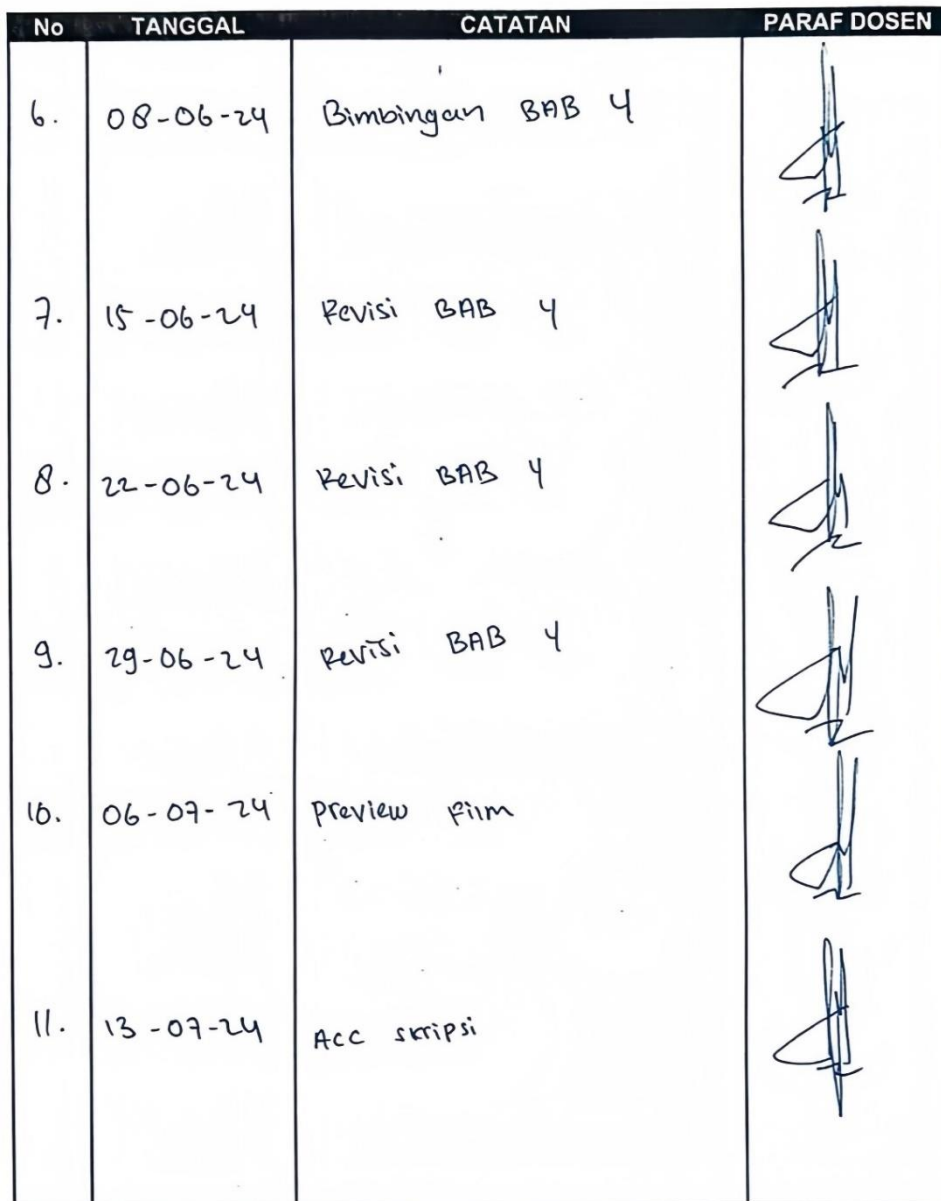 No TANGGAL CATATAN PARAF DOSEN
6. 08-06-24 Bimbingan BAB 4
7. 15-06-24 Revisi BAB 4
8. 22-06-24 Revisi BAB 4
9. 29-06-24 Revisi BAB 4
10. 06-07-24 Preview Film
11. 13-07-24 Acc skripsi